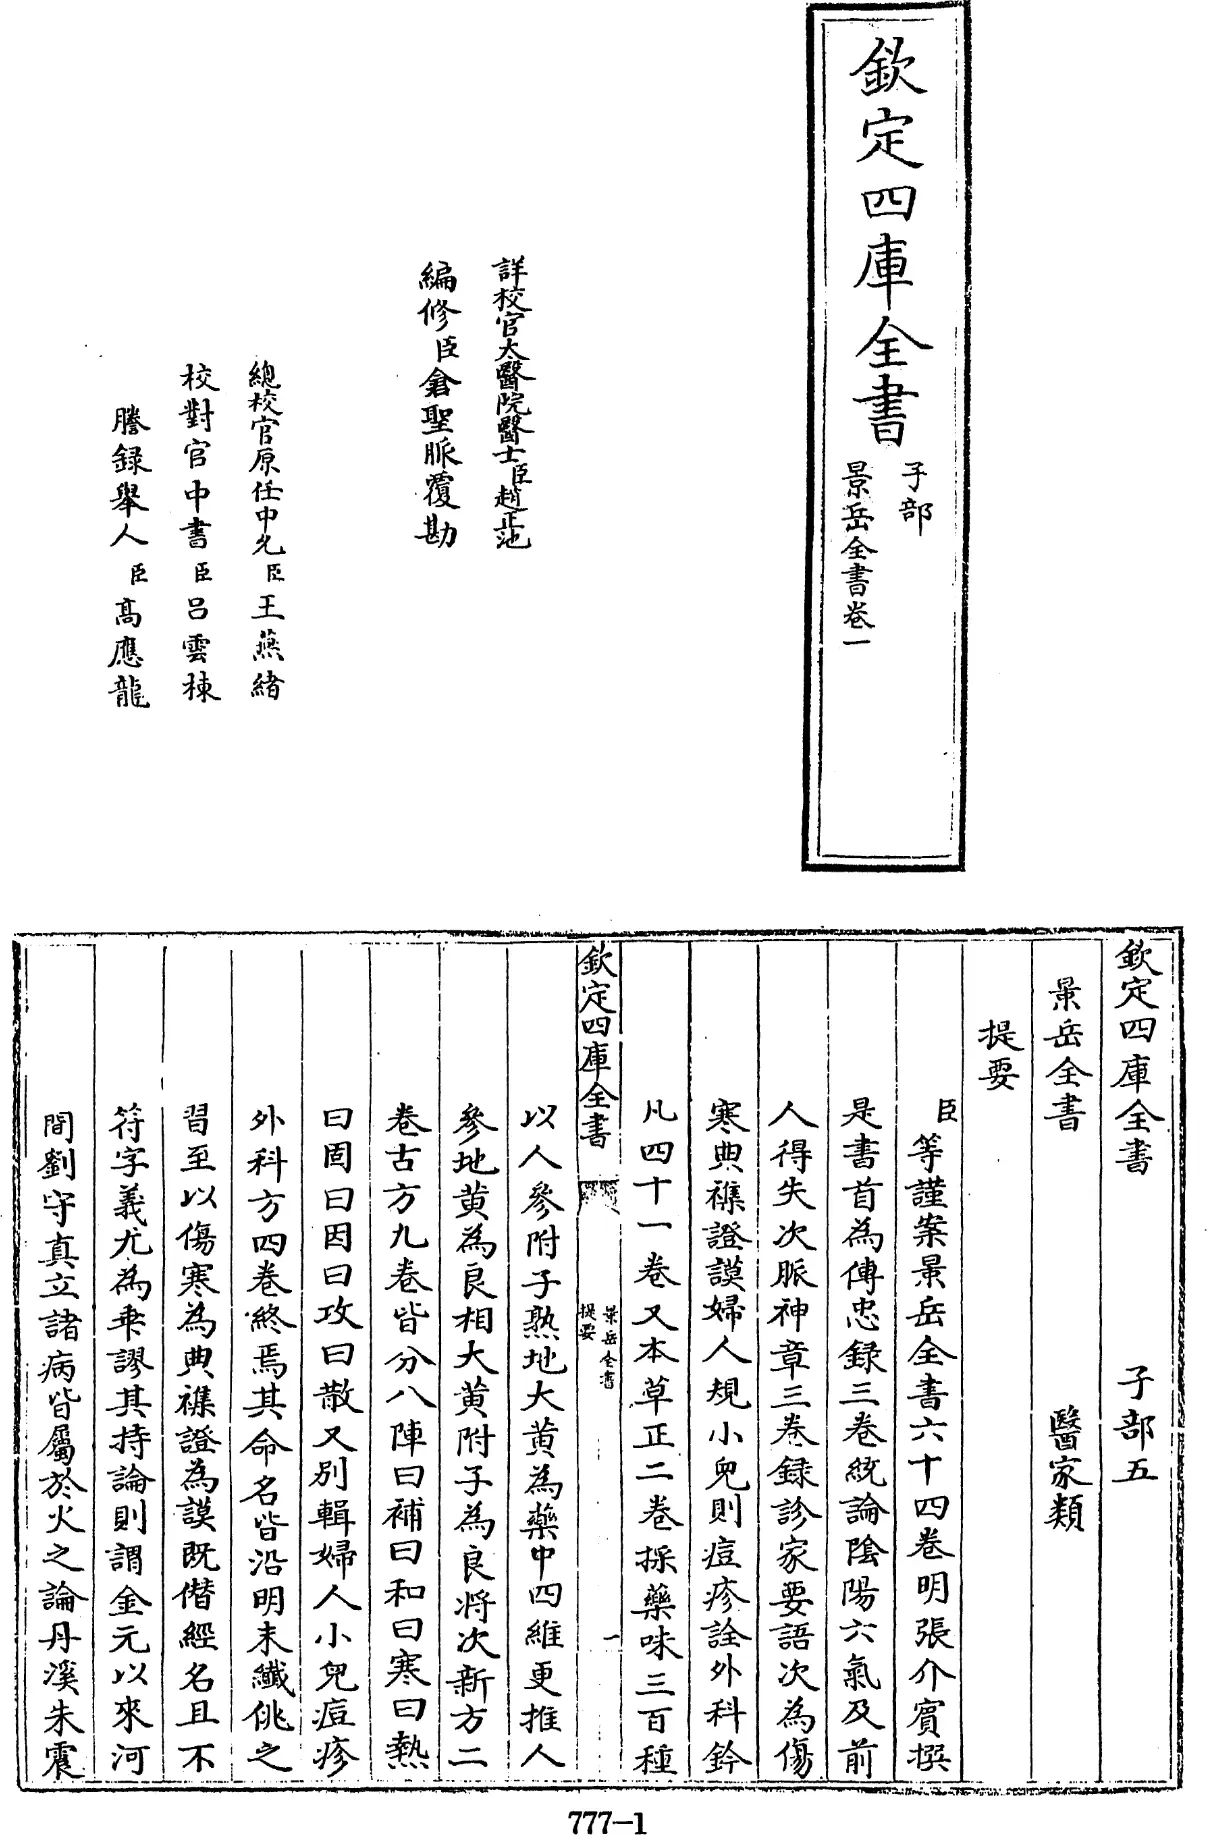 欽定四庫全書
子部
景岳全書卷一
詳校官太醫院醫士臣趙正池
編修臣倉聖脈覆勘
總校官原任中允臣王燕緒
校對官中書臣呂雲棟
謄錄舉人臣高應龍
欽定四庫全書 子部五
景岳全書 醫家類
提要
臣等謹案景岳全書六十四卷明張介賓撰
是書首為傳忠録三卷統論陰陽六氣及前
人得失次脈神章三卷録診家要語次為傷
寒典襍證謨婦人規小兒則痘疹詮外科鈐
凡四十一卷又本草正二卷採藥味三百種
欽定四庫全書
景岳全書
提要
一
以人參附子熟地大黄為藥中四維更推人
參地黄為良相大黄附子為良將次新方二
卷古方九卷皆分八陣曰補曰和曰寒曰熱
曰固曰因曰攻曰散又别輯婦人小兒痘疹
外科方四卷終焉其命名皆沿明末纖佻之
習至以傷寒為典襍證為謨既僭經名且不
符字義尤為乖謬其持論則謂金元以來河
間劉守真立諸病皆屬於火之論丹溪朱震
777-1